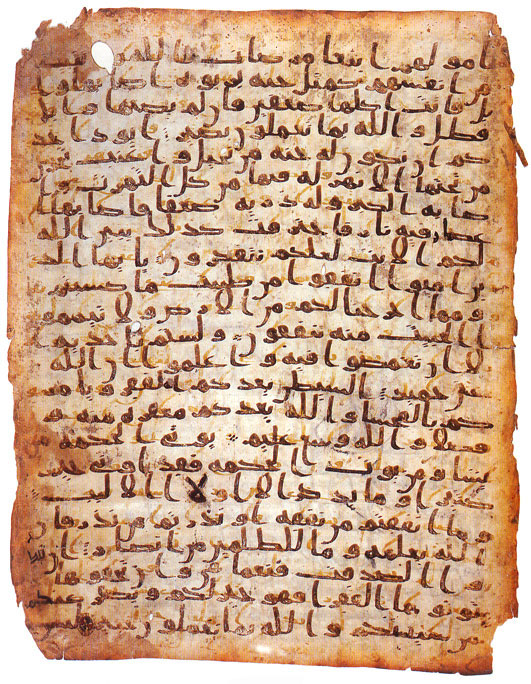 امولهم ابتغا مرضات الله وتثبيتا
من انفسهم كمثل جنه بربوه اصابها وا
بل فاتت اكلها ضعفين فان لم يصبها وابل
فطل والله بما تعملون بصير ايود ا حد
كم ان تكون له جنه من نخيل واعنب تجري
من تحتها الانهر له فيها من كل الثمرت وا
صابه الكبر وله ذريه ضعفا فاصابها ا
عصار فيه نار فاحترقت كذلك يبين الله
لكم الايت لعلكم تتفكرون يايها الذ
ين امنوا انفقوا من طيبت ما كسبتم
ومما اخرجنا لكم من الارض ولا تيمموا
الخبيث منه تنفقون ولستم باخذيه ا
لا ان تغمضوا فيه واعلموا ان الله
غني حميد الشيطن يعدكم الفقر ويامر
كم بالفحشا والله يعدكم مغفره منه و
فضلا والله وسع عليم يوتي الحكمه من
يشا ومن يوت الحكمه فقد اوتي خيرا
كثيرا وما يذكر الا اولوا الالبب
وما انفقتم من نفقه او نذرتم من نذر فان
الله يعلمه وما للظلمين من انصار ان تبد
وا الصدقت فنعما هي وان تخفوها و
توتوها الفقرا فهو خير لكم ويكفر عنكم
من سيئتكم والله بما تعملون خبير ليس